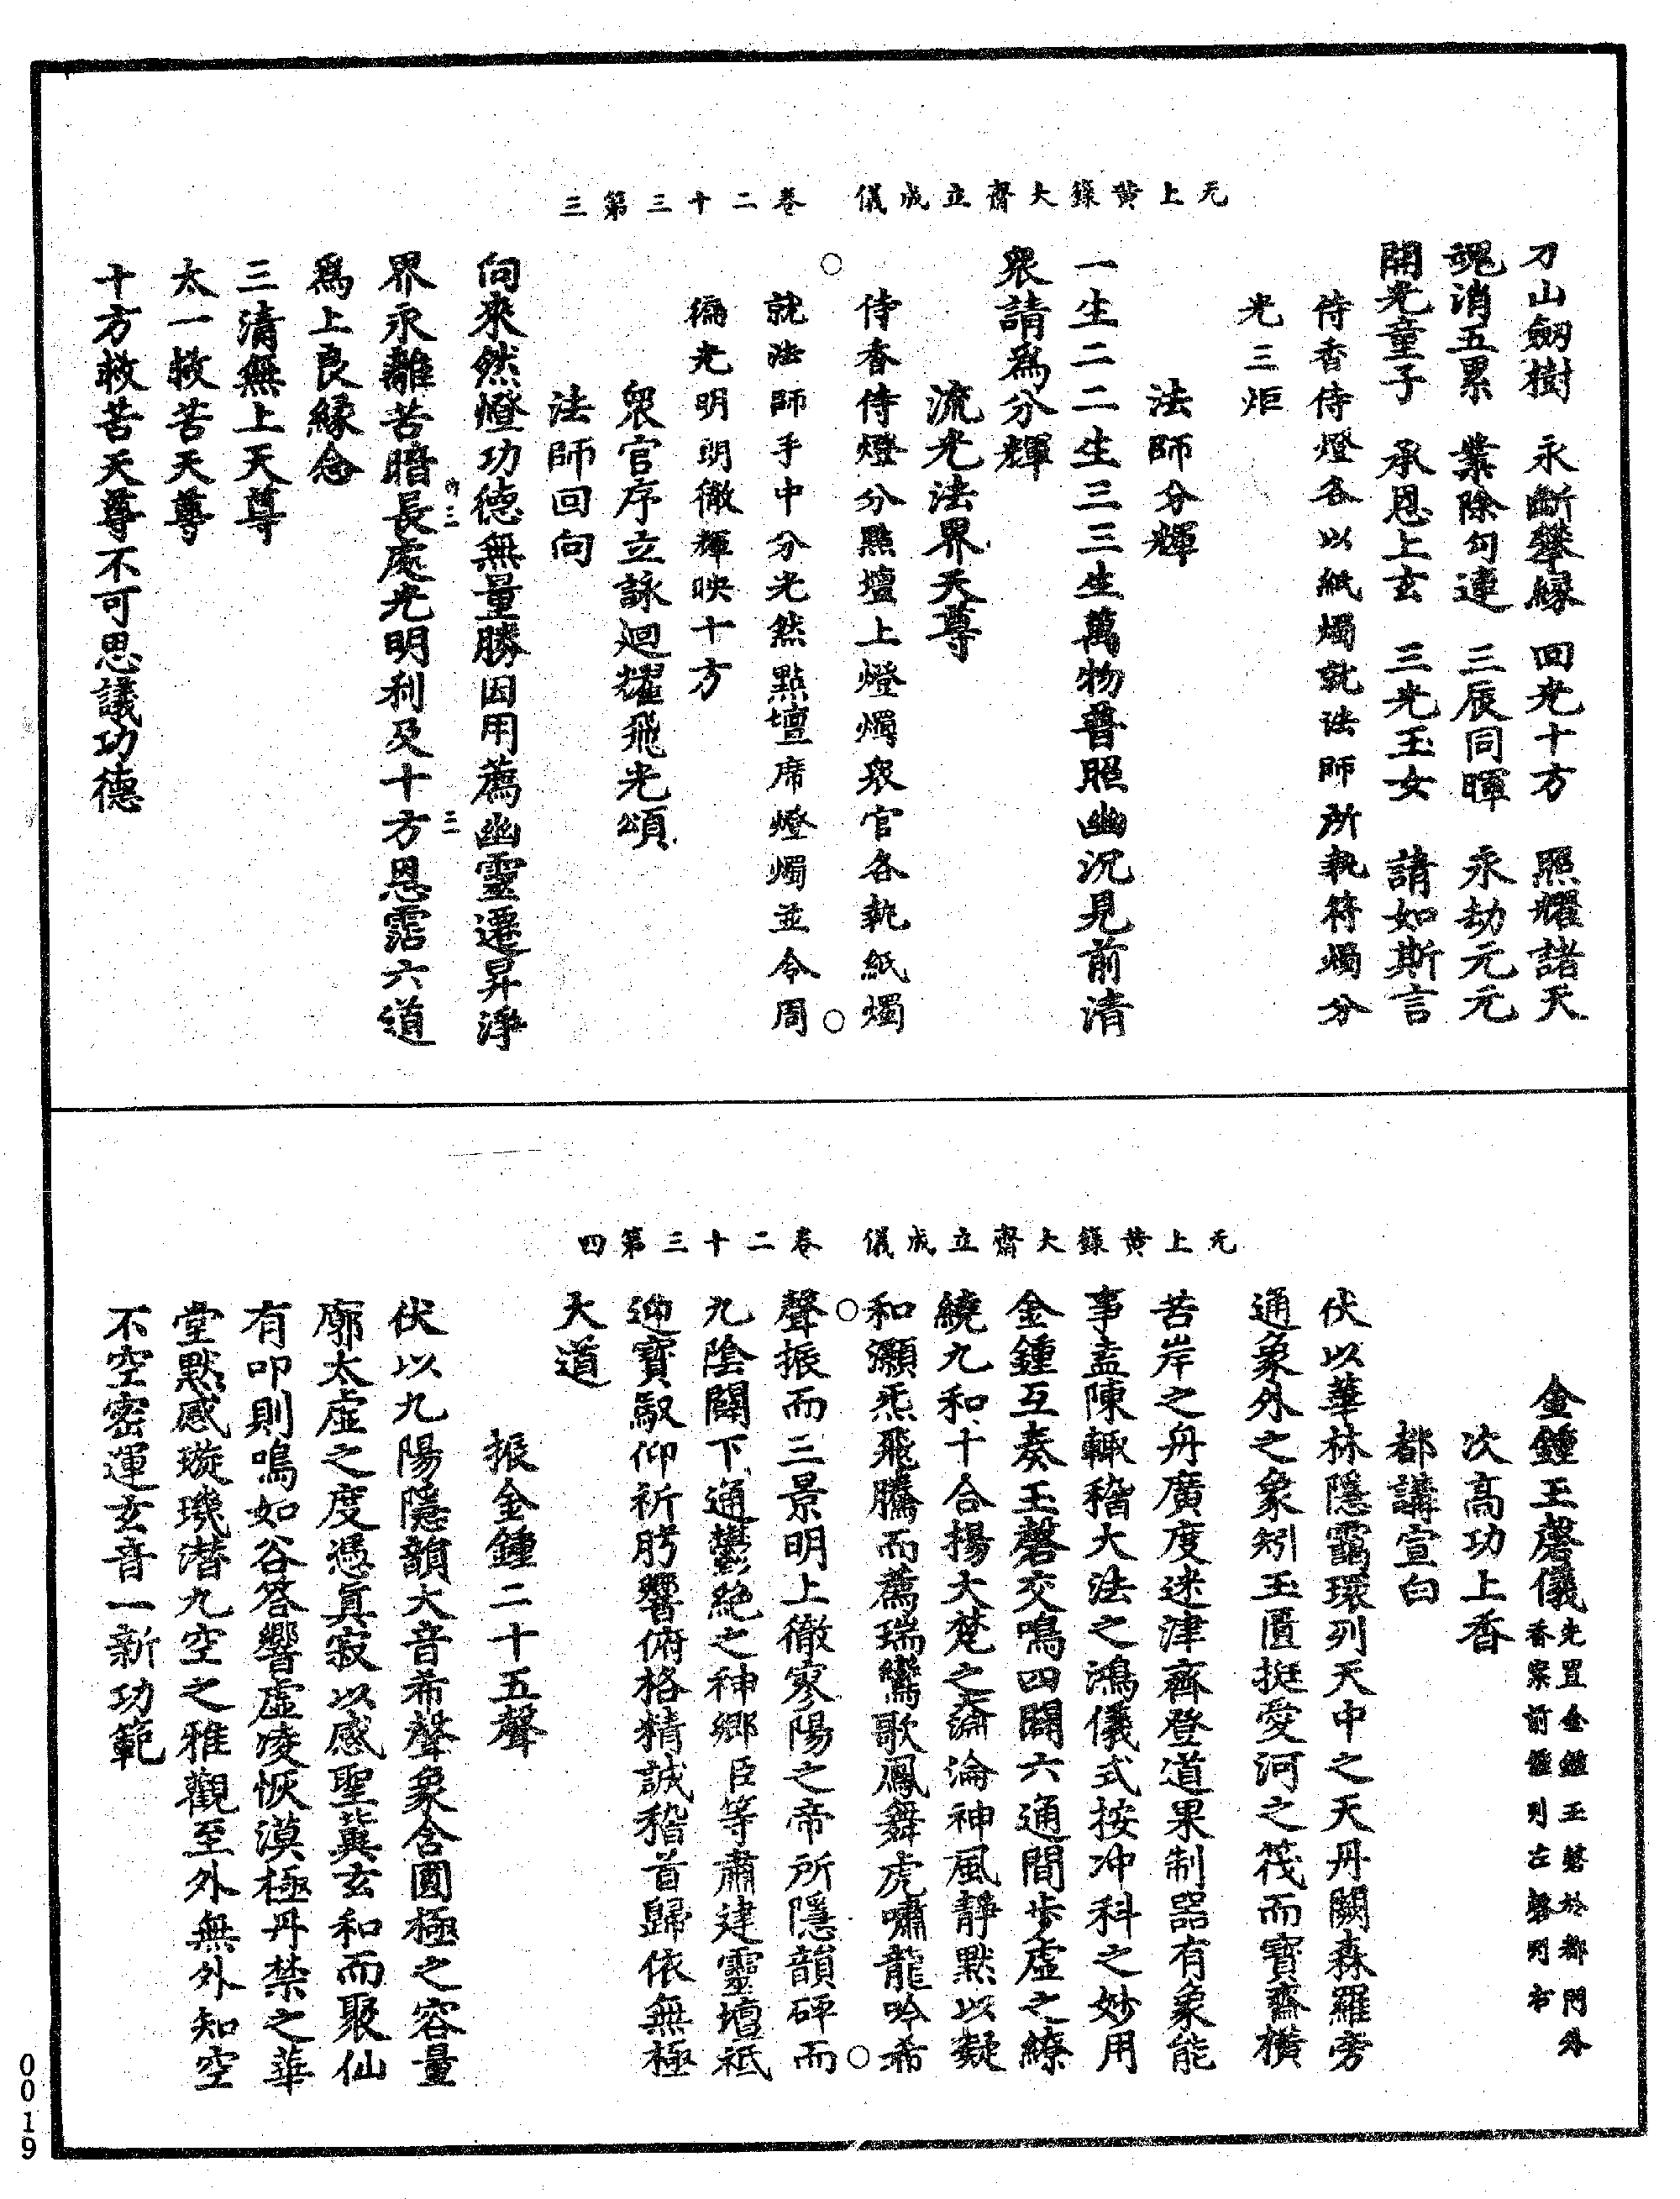 无上黃籙大齋立成儀　卷二十三第三
刀山劒樹　永斷攀緣　回光十方　照耀諸天
魂消五累　業除勾連　三辰同暉　永劫元元
開光童子　承恩上玄　三光玉女　請如斯言
侍香侍燈各以紙燭就法師所執符燭分
光三炬
法師分輝
一生二二生三三生萬物普照幽沉見前清
衆請爲分輝
流光法界天尊
侍香侍燈分點壇上燈燭衆官各執紙燭
就法師手中分光然點壇席燈燭並令周
徧光明朗徹輝映十方
衆官序立詠迴耀飛光頌
法師回向
向來然燈功德無量勝因用薦幽靈遷昇淨
界永離苦暗長處光明利及十方恩霑六道
爲上良緣念
三清無上天尊
太一救苦天尊
十方救苦天尊不可思議功德
无上黃籙大齋立成儀　卷二十三第四
金鍾玉磬儀先置金鍾玉磬於都門外香案前鍾列左磬列右
次高功上香
都講宣白
伏以華林隱靄環列天中之天丹闕森羅旁
通象外之象矧玉匱挺愛河之筏而寶齋橫
苦岸之舟廣度迷津齊登道果制器有象能
事盍陳輙稽大法之鴻儀式按冲科之妙用
金鍾互奏玉磬交鳴四闢六通間步虛之繚
繞九和十合揚大梵之瀹淪神風靜默以凝
和灝炁飛騰而薦瑞鸞歌鳳舞虎嘯龍吟希
聲振而三景明上徹寥陽之帝所隱韻砰而
九陰闢下通鬱絕之神鄉臣等肅建靈壇祗
迎寶馭仰祈肹響俯格精誠稽首歸依無極
大道
振金鍾二十五聲
伏以九陽隱韻大音希聲象含圓極之容量
廓太虛之度憑真寂以感聖冀玄和而聚仙
有叩則鳴如谷答響虛凌恢漠極丹禁之華
堂默感璇璣潛九空之雅觀至外無外知空
不空密運玄音一新功範
0019